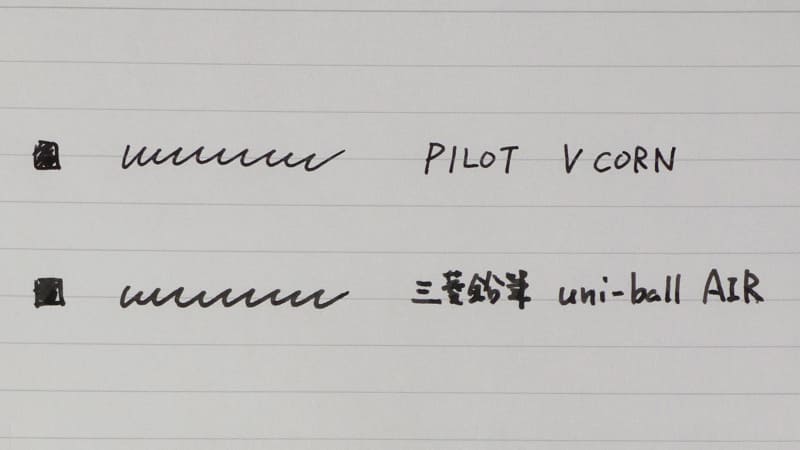 PILOT V CORN
三菱鉛筆 uni-ball AIR